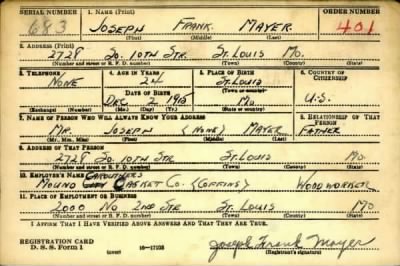 SERIAL NUMBER 1. NAME (Print) ORDER NUMBER
683 JOSEPH FRANK MAYER 401
(First) (Middle) (Last)
2. ADDRESS (Print)
2728 SO. 10TH STR. ST. LOUIS MO.
(Number and street or R. F. D. number) (Town) (County) (State)
3. TELEPHONE 4. AGE IN YEARS 5. PLACE OF BIRTH 6. COUNTRY OF CITIZENSHIP
NONE 24 ST. LOUIS
DATE OF BIRTH (Town or county)
DEC 2, 1915 MO U.S.
(Exchange) (Number) (Mo.) (Day) (Yr.) (State or country)
7. NAME OF PERSON WHO WILL ALWAYS KNOW YOUR ADDRESS 8. RELATIONSHIP OF THAT PERSON
MR. JOSEPH (NONE) MAYER FATHER
(Mr., Mrs., Miss) (First) (Middle) (Last)
9. ADDRESS OF THAT PERSON
2728 SO. 10TH STR. ST. LOUIS MO.
(Number and street or R. F. D. number) (Town) (County) (State)
10. EMPLOYER'S NAME
MOUND CITY CASKET CO. (COFFINS) WOODWORKER
11. PLACE OF EMPLOYMENT OR BUSINESS
2000 NO 2ND STR ST. LOUIS MO
(Number and street or R. F. D. number) (Town) (County) (State)
I AFFIRM THAT I HAVE VERIFIED ABOVE ANSWERS AND THAT THEY ARE TRUE.
REGISTRATION CARD
D. S. S. Form 1 (over) Joseph Frank Mayer
(Registrant's signature)